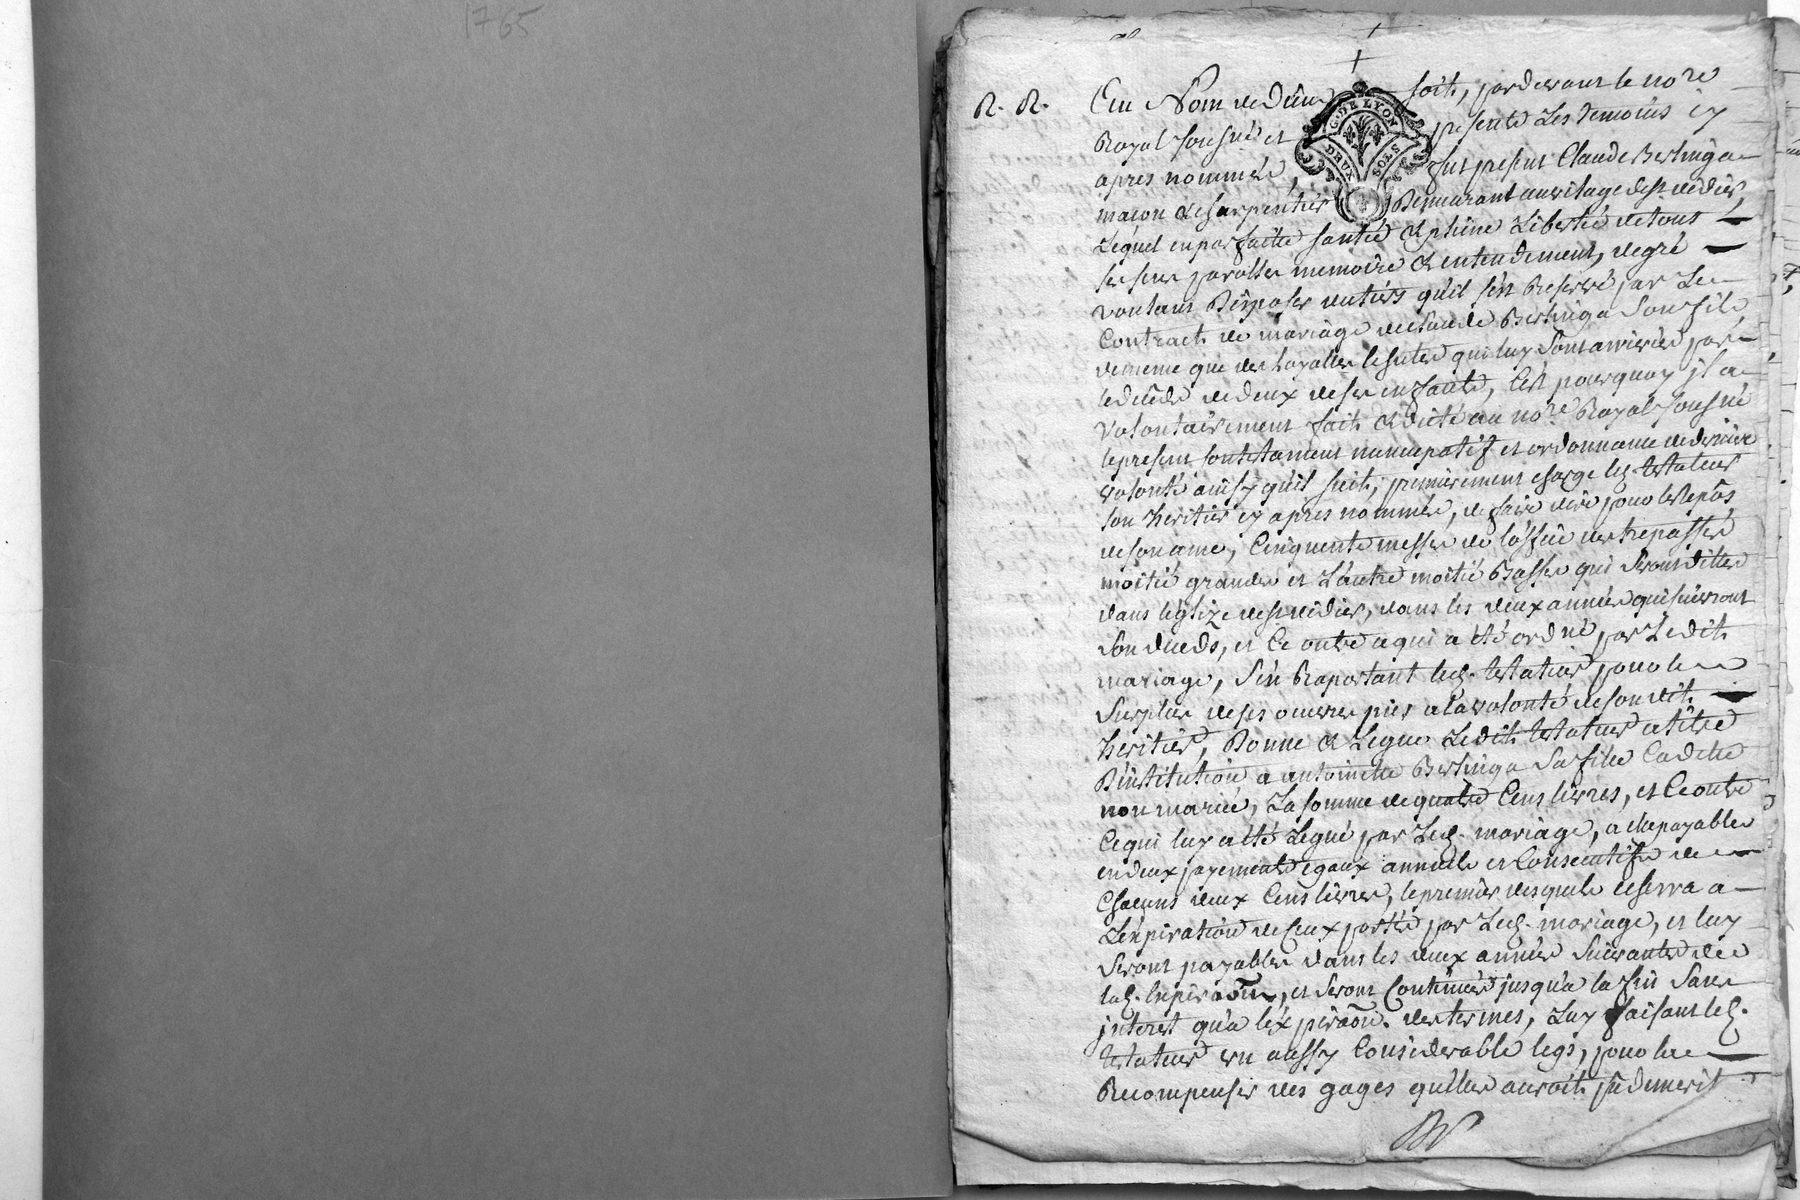 1765
R. R. Au Nom de Dieu soit, pardevant le no.re
Royal sousné et presents Les temoins cy
apres nommés, fut present Claude Berlinga
macon & charpentier Demeurant au vilage de st. didier,
Lequel en parfaitte santé & pleine Liberté de tous
ses sens parolle memoire & entendement, de gré
voulant Disposer du tiers qu'il s'est Reservé par Le
Contract de mariage de Claude Berlinga son fils,
de meme que des loyalles qui luy sont arrivées par
le décéds de deux de ses enfants, C'est pourquoy il a
volontairement fait & dicté au no.re Royal sousné
le present son testament nuncupatif et ordonnance de derniere
volonté ainsy qu'il suit, premierement charge led. testateur
son heritier cy apres nommé, de faire dire pour le Repos
de son ame, Cinquante messes de l'office des trepassés
moitié grandes et L'autre moitié Basses qui seront dittes
dans l'églize de st. didier, dans les deux années qui suivront
son décéds, et Ce outre a qui a été ordné, par Ledit
mariage, s'en Raportant led. testateur pour le
surplus de ses oeuvres pies a la volonté de son dit
heritier, Donne & Legue Ledit testateur a titre
D'institution a antoinette Berlinga sa fille Cadette
non mariée, La somme de quatre Cens livres, et Ce outre
Ce qui luy a été Legué par Led. mariage, a elle payable
en deux payements egaux annuels et Consecutifs de
Chacuns deux Cens livres, le premier desquels
L'expiration de Ceux portés par Led. mariage, et luy
seront payables dans les deux années suivantes de
lad. expiraõn, et seront Continués jusqu'a la fin sans
interet qu'a l'expiraõn. des termes, Luy faisant led.
testateur un aussy Considerable legs, pour la
Recompenser des gages qu'elle auroit